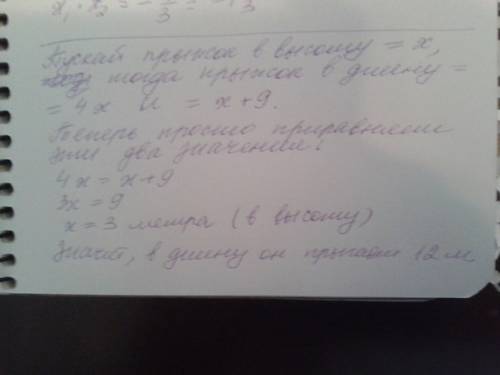 x₁ · x₂ = - 7/3 =
Пускай прыжок в высоту = x,
тогда прыжок в длину =
= 4x и = x+9.
Теперь просто приравняем
эти два значения:
4x = x+9
3x = 9
x = 3 метра (в высоту)
Значит, в длину он прыгает 12 м